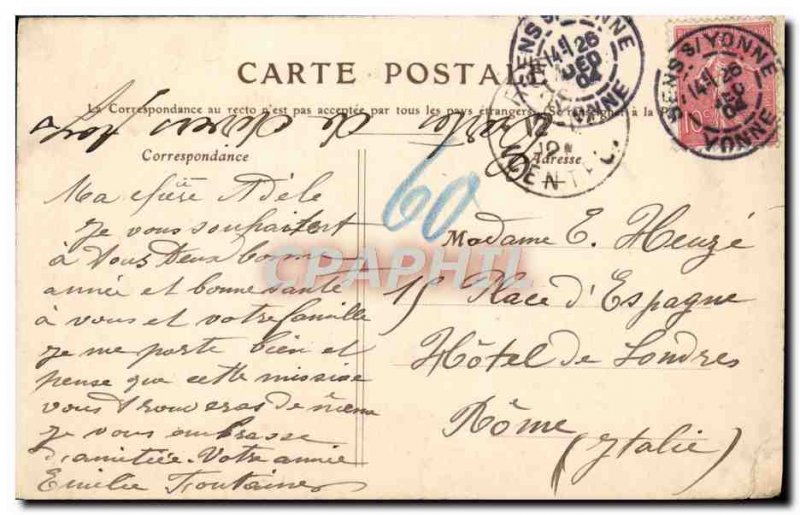 CARTE POSTALE
La Correspondance au recto n'est pas acceptée par tous les pays étrangers. Se
à la P
SENS S/YONNE
14-1 26
DEC
04
YONNE
SENS S/YONNE
14-1 26
DEC
04
YONNE
10c
12
de
Correspondance
Adresse
60
Ma chère Adèle
Je vous souhaitent
à Vous Deux bonne
année et bonne santé
à vous et votre famille
je me porte bien et
pense que cette missive
vous trouveras de même
je vous embrasse
d'amitiée. Votre amie
Emilie Fontaine
Madame E. Heuzé
15 Place d'Espagne
Hôtel de Londres
Rôme
(Italie)
CPAPHIL